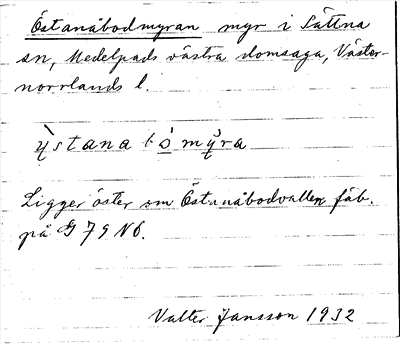 Östanåbodmyran myr i Sättna
sn, Medelpads västra domsaga, Väster-
norrlands l.
ỳstana bó mỹra
Ligger öster om Östanåbodvallen fäb.
på G 79 NÖ.
Valter Jansson 1932